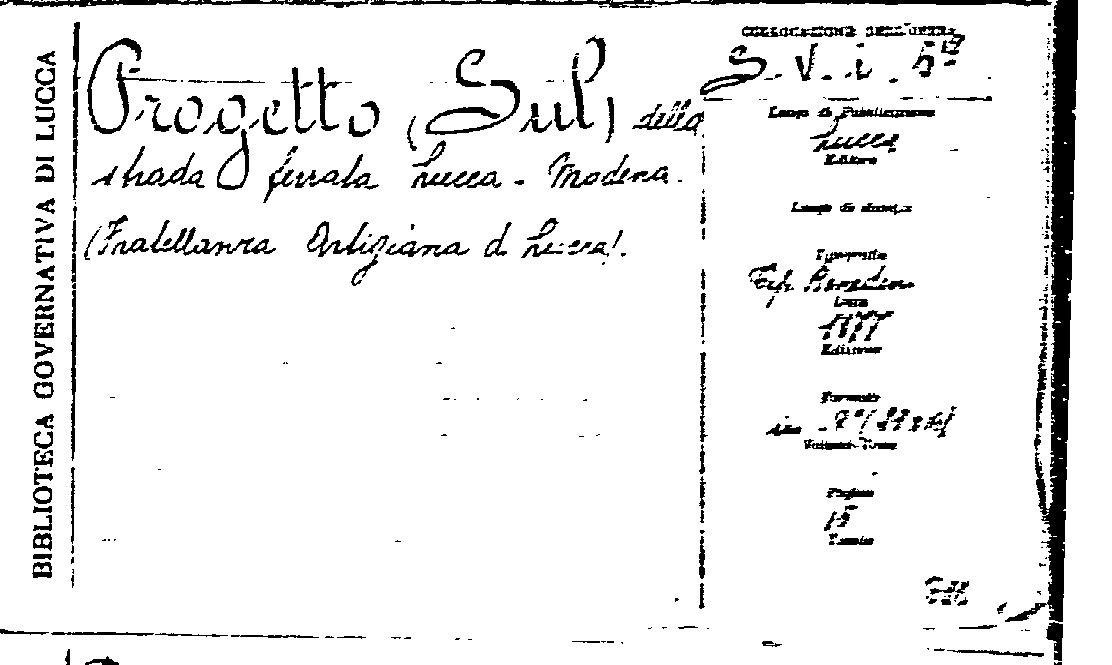 BIBLIOTECA GOVERNATIVA DI LUCCA
Progetto (Sul) della
strada ferrata Lucca - Modena.
(Fratellanza Artigiana di Lucca).
COLLOCAZIONE DELL'OPERA
S. V. i. 5
Luogo di Pubblicazione
Lucca
Editore
Luogo di stampa
Tipografia
Tip.
Data
1877
Edizione
Formato
in - 8°
Pagine
15
Tavole